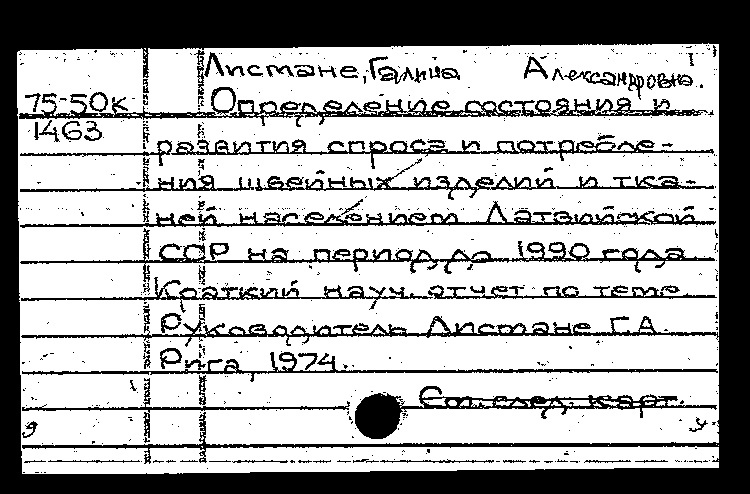 Листане, Галина Александровна.
75-50к Определение состояния и
1463
развития спроса и потребле-
ния швейных изделий и тка-
ней населением Латвийской
ССР на период до 1990 года
Краткий науч. отчет по теме
Руководитель Листане Г.А
Рига, 1974.
См. след. карт.